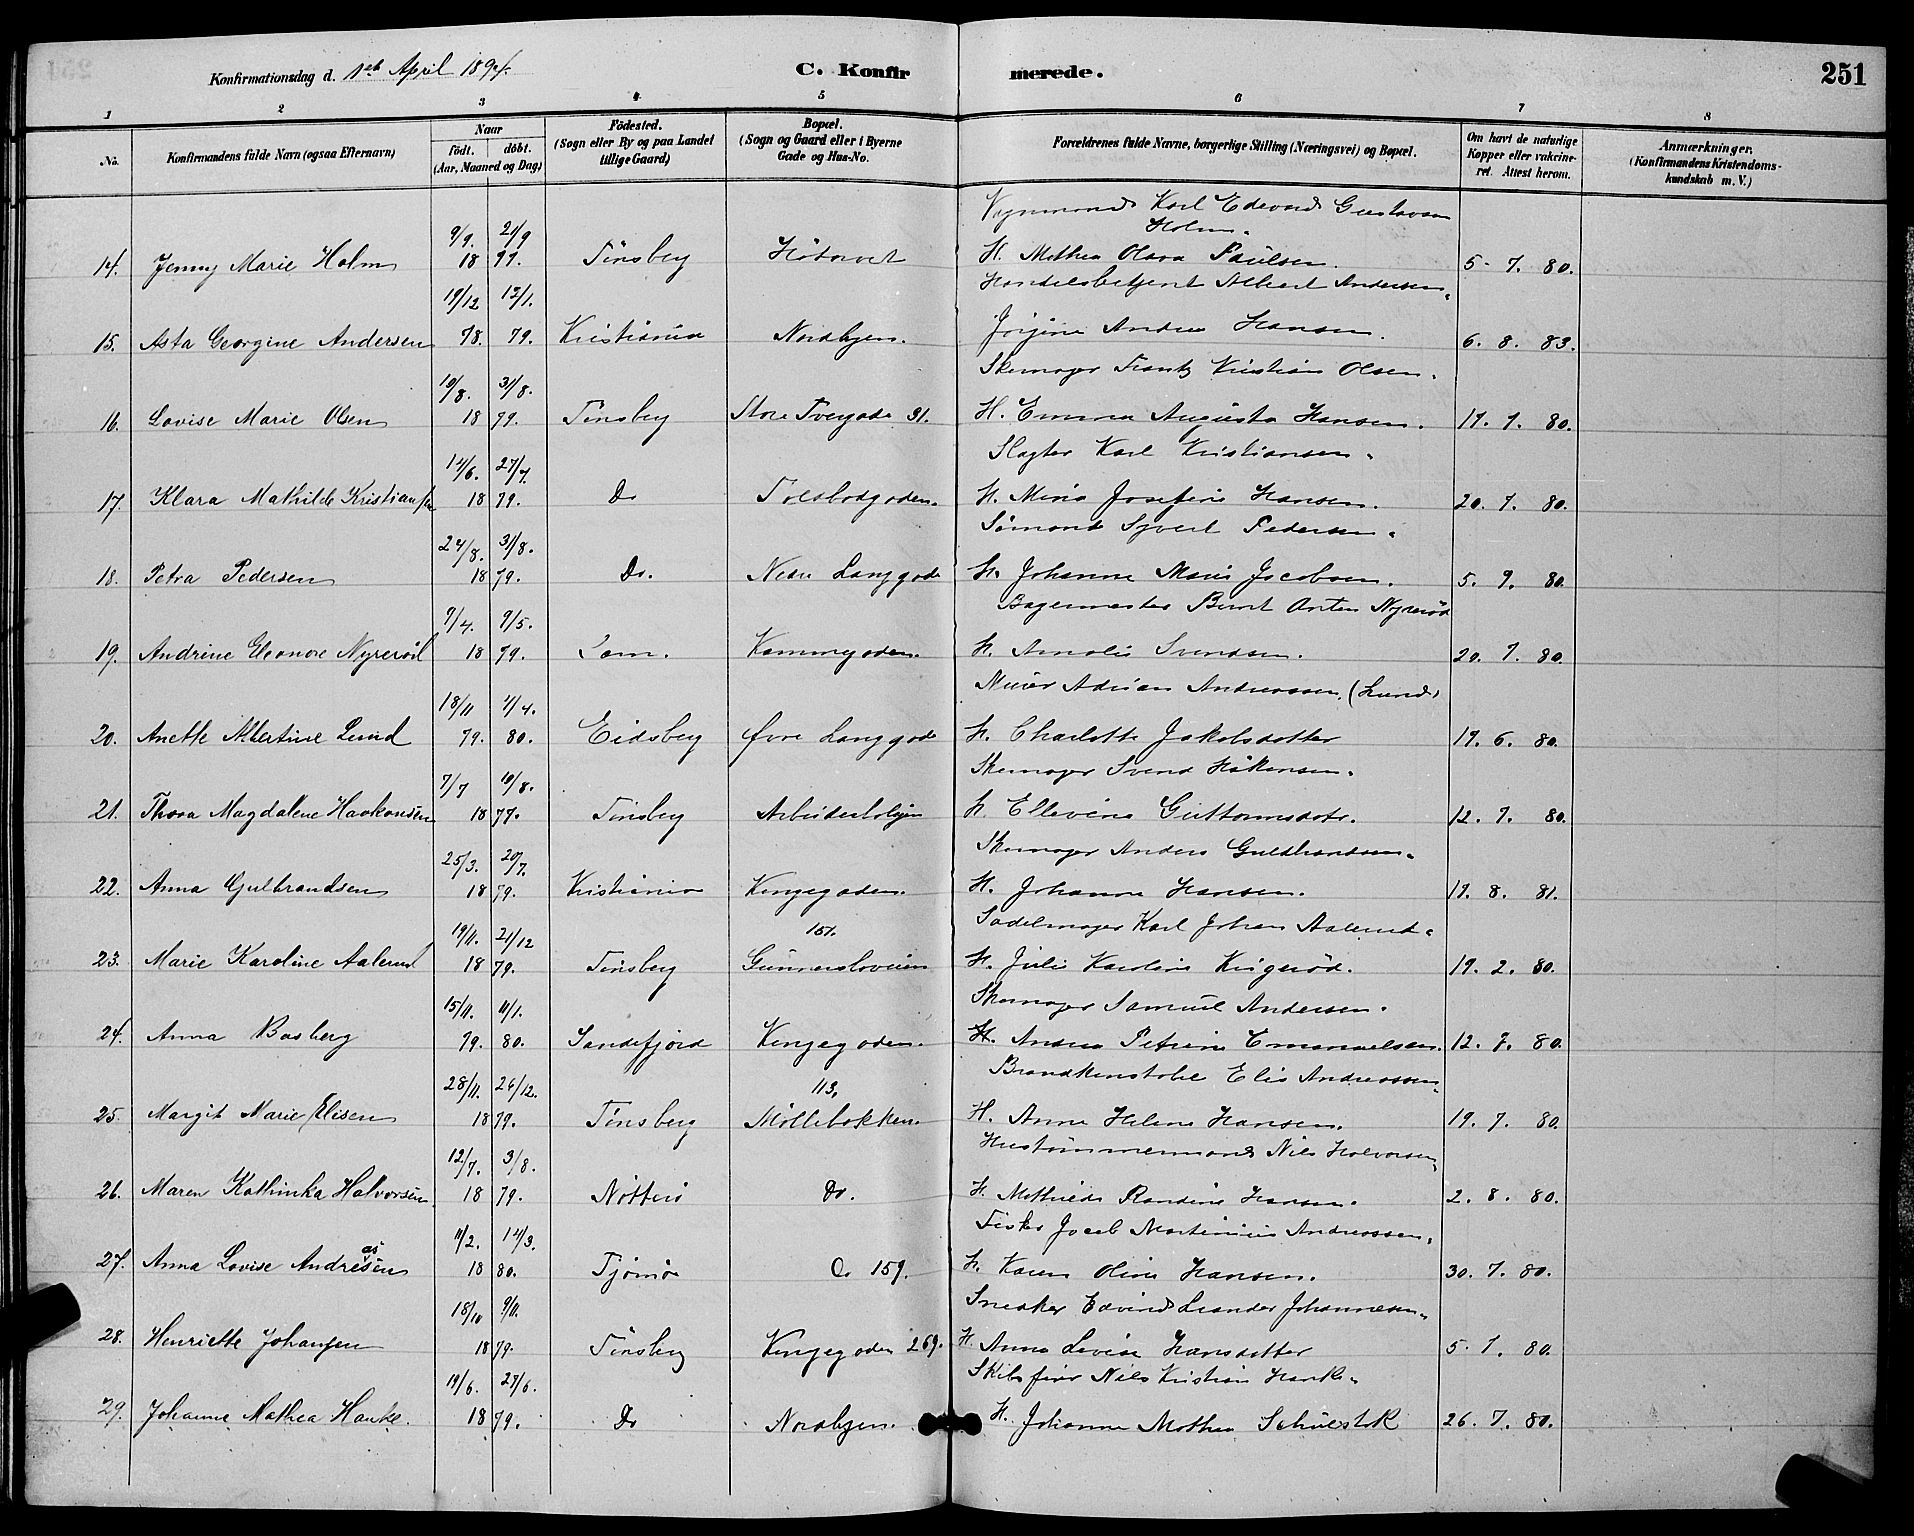 Konfirmationsdag d. 1ste April 1894.
C. Konfirmerede.
251
1 2 3 4 5 6 7 8
No.
Konfirmandens fulde Navn (ogsaa Efternavn)
Naar
födt. döbt.
(Aar, Maaned og Dag)
Födested.
(Sogn eller By og paa Landet
tillige Gaard)
Bopæl.
(Sogn og Gaard eller i Byerne
Gade og Hus-No.
Forældrenes fulde Navne, borgerlige Stilling (Næringsvei) og Bopæl.
Om havt de naturlige
Kopper eller vakcine-
ret. Attest herom.
Anmærkninger.
(Konfirmandens Kristendoms-
kundskab m. V.)
Karl Edevard Gustavsen
9/9. 21/9 Holm.
14. Jenny Marie Holm 18 79. Tönsberg H. Mathea Olava Paulsen. 5. 7. 80.
19/12 12/1. Handelsbetjent Albert Andersen.
15. Asta Georgine Andersen 78. 79. Kristiania Nordbyen. Jörgine Andrea Hansen. 6. 8. 83.
19/8. 31/8. Skomager Frantz Kristian Olsen.
16. Lovise Marie Olsen 18 79. Tönsberg Store Tvergade 31. H. Emma Augusta Hansen. 17. 7. 80.
14/6. 27/7. Slagter Karl Kristiansen.
17. Klara Mathilde Kristiansen 18 79. Do Toldbodgaden. H. Mina Josefine Hansen. 20. 7. 80.
24/8. 31/8. Sömand Syvert Pedersen.
18. Petra Pedersen 18 79. Do. Nedre Langgade H. Johanne Marie Jacobsen. 5. 9. 80.
7/4. 9/5. Bagermester Bernt Anton Nyreröd
19. Andrine Eleonore Nyreröd 18 79. Sam. Kammegaden. H. Amalie Svendsen. 20. 7. 80.
18/11 4/4. Murer Adrian Andreassen. (Lund)
20. Anette Albertine Lund 79. 80. Eidsberg Övre Langgade H. Charlotte Jakobsdatter 19. 6. 80.
7/7 10/8. Skomager Svend Håkensen.
21. Thora Magdalene Haakonsen 18 79. Tönsberg Arbeiderboligen H. Ellevine Guttormsdatr. 12. 7. 80.
25/3. 20/7. Skomager Anders Guldbrandsen.
22. Anna Gulbrandsen 18 79. Kristiania Kongegaden. H. Johanne Hansen. 19. 8. 81.
19/11. 21/12 151. Sadelmager Karl Johan Aalerud.
23. Marie Karoline Aalerud 18 79. Tönsberg Gunnersboveien H. Julie Karoline Ringeröd. 19. 2. 80.
15/11. 11/1. Skomager Samuel Andersen.
24. Anna Bosberg 79. 80. Sandefjord Kongegaden. H. Andrea Petrine Emanuelsen. 12. 7. 80.
28/11. 26/12. 113, Brandkonstabel Elis Andreassen.
25. Margit Marie Elisen 18 79. Tönsberg Möllebakken. H. Anne Helene Hansen. 19. 7. 80.
12/7. 3/8. Hustömmermand Nils Halvorsen.
26. Maren Kathinka Halvorsen. 18 79. Nötterö Do. H. Mathilde Randine Hansen. 2. 8. 80.
11/2. 14/3. Fisker Jacob Martinius Andreassen.
27. Anna Lovise Andreasen 18 80. Tjömö Do 159. H. Karen Oline Hansen. 30. 7. 80.
18/10 9/11. Snedker Edvind Leander Johannesen.
28. Henriette Johansen 18 79. Tönsberg Kongegaden 269. H. Anna Lovise Hansdatter 5. 7. 80.
19/6. 29/6. Skibsförer Nils Kristian Hanke.
29. Johanne Mathea Hanke. 18 79. Do Nordbyen. H. Johanne Mathea 26. 7. 80.